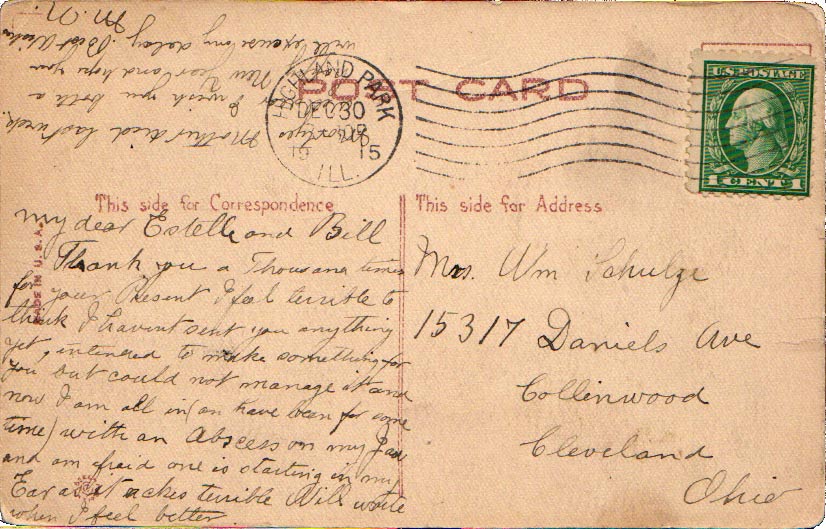 POST CARD
HIGHLAND PARK
DEC 30
19 15
ILL.
U.S. POSTAGE
1 CENT 1
This side for Correspondence
This side for Address
MADE IN U.S.A.
My dear Estelle and Bill
Thank you a Thousand times
for your Present I feel terrible to
think I havent sent you anything
yet, intended to make something for
you but could not manage it and
now I am all in (an have been for some
time) with an Abscess on my Jaw
and am fraid one is starting in my
Ear as it aches terrible Will write
when I feel better.
Mother died last week.
I wish you both a
New Year and hope you
will excuse my delay. Best Wishes
M. N.
Mrs. Wm Schulze
15317 Daniels Ave
Collinwood
Cleveland
Ohio